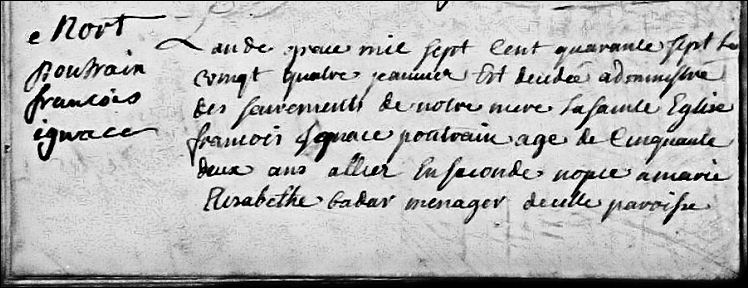 e Mort
poutrain
francois
ignace
Lan de grace mil sept cent quarante sept le
vingt quatre jeanvier Est decedée administré
des sacrements de notre mere La sainte Eglise
francois ignace poutrain age de Cinquante
deux ans allier En seconde nopce a marie
Elisabethe badar menager de cette paroisse